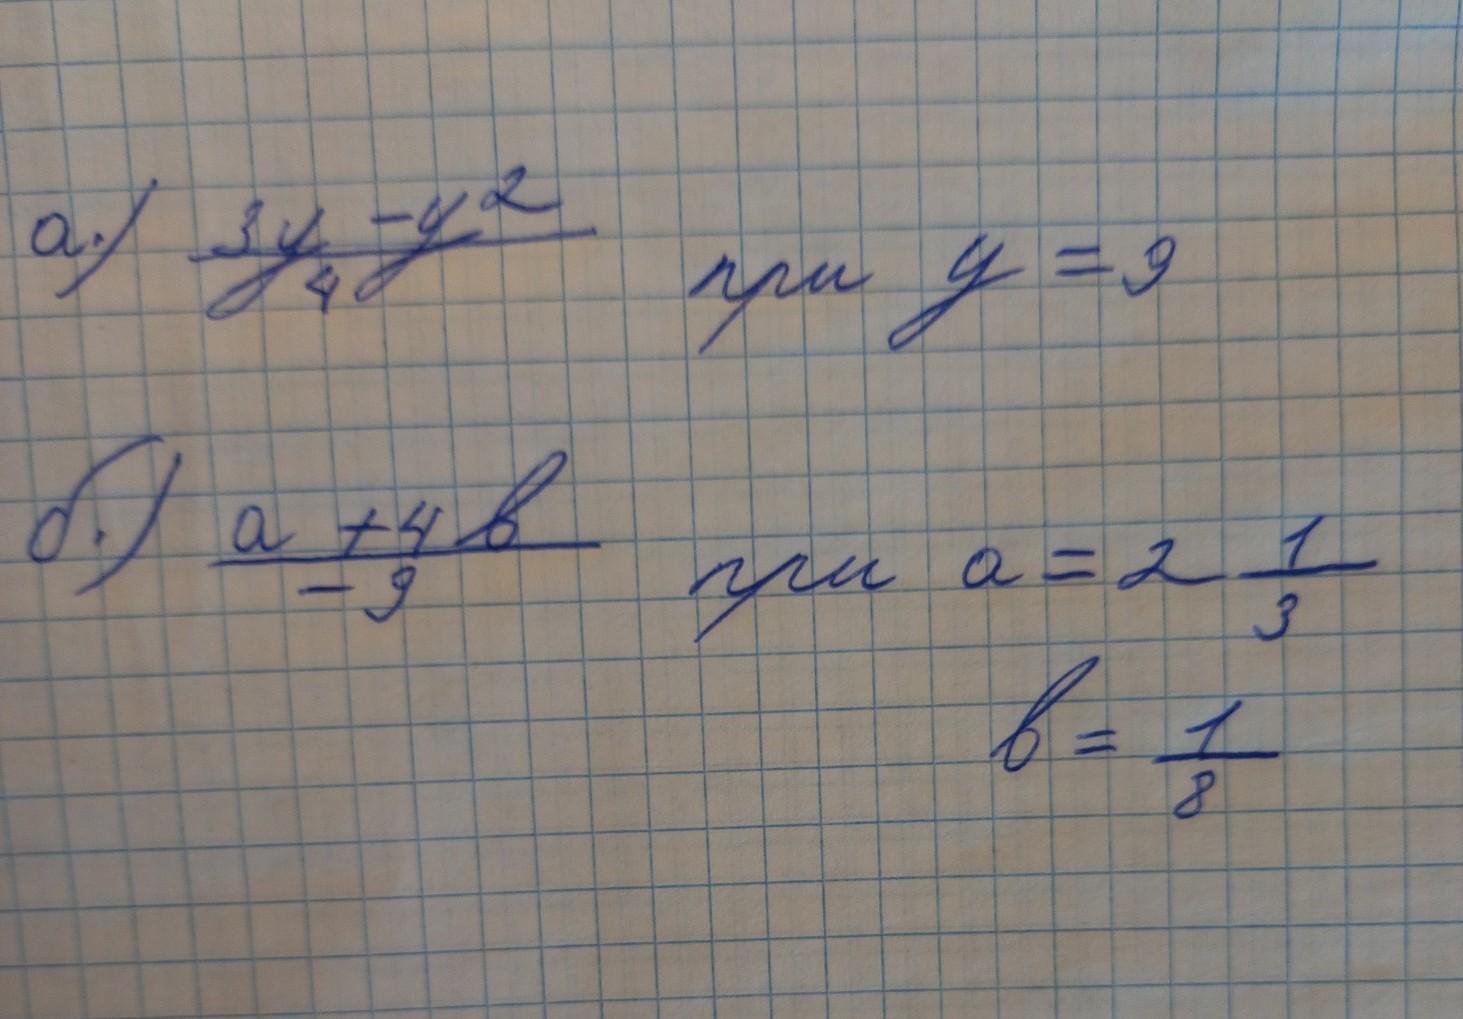 а.) (3y - y²)/4 при y = 9
б.) (a + 4b)/(-9) при a = 2 1/3
b = 1/8